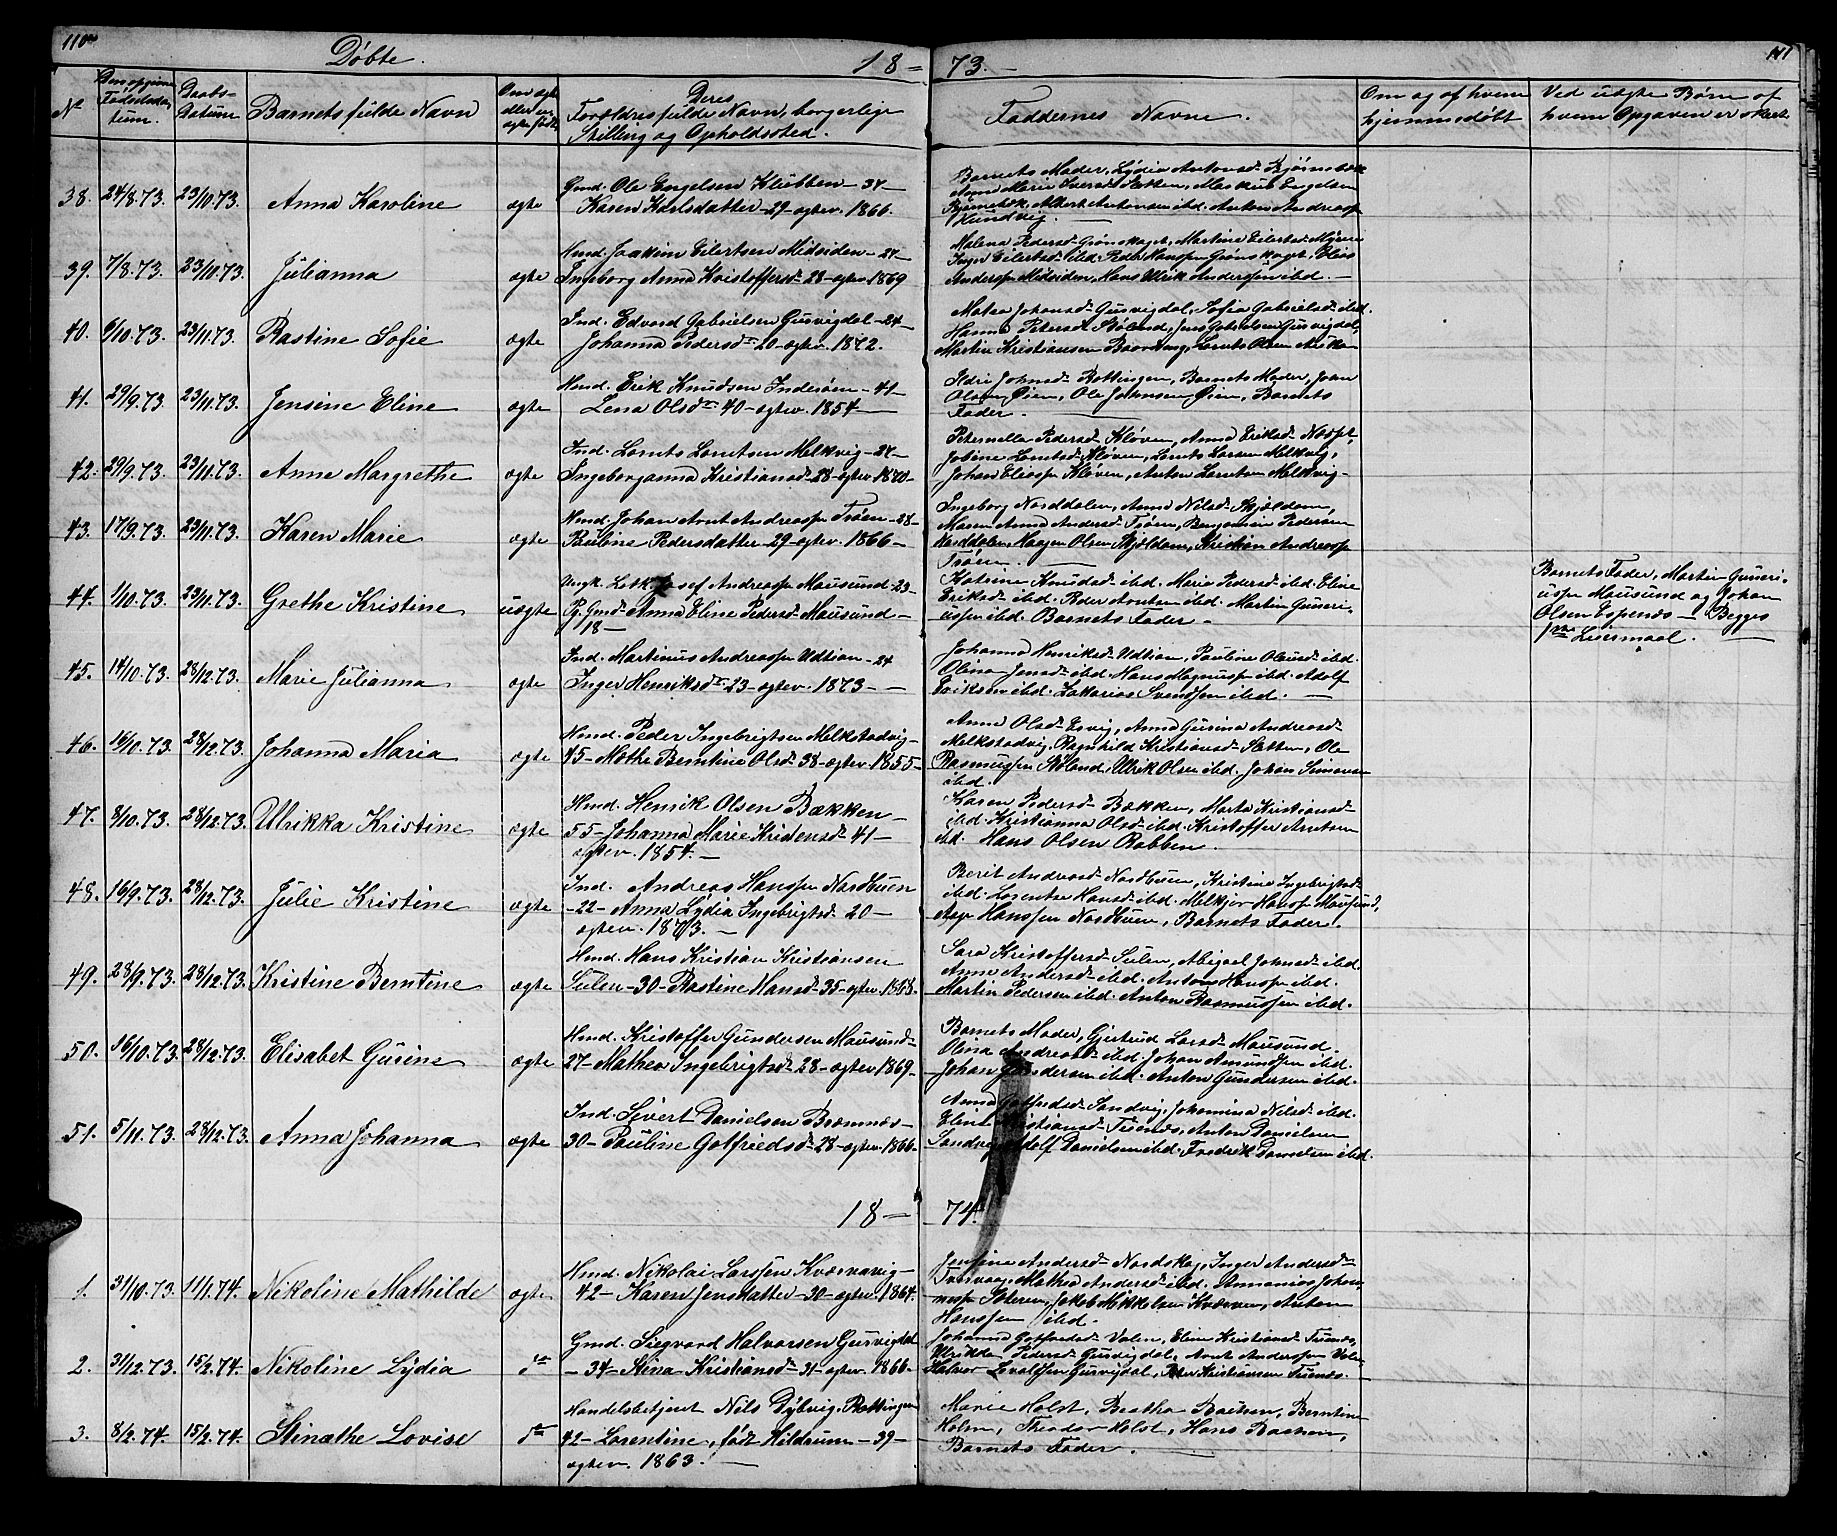 110
Døbte.
18 =
73. -
111
No
Den opgivne Fødselsdatum.
Daabs-Datum
Barnets fulde Navn
Om ægte eller uægte født
Deres Forældres fulde Navn, borgerlige Stilling og Opholdssted.
Faddernes Navne.
Om og af hvem hjemmedøbt
Ved uægte Børn af hvem Opgaven er skeet
38. 24/8.73. 23/10.73. Anna Karoline ægte
Gmd. Ole Engelsen Klubben - 34 -
Karen Karlsdatter - 29 - ægtev. 1866.
Barnets Moder, Lydia Antonsd.
Anne Marie Iversd. Sætten,
39. 7/8.73. 23/10.73. Julianna ægte
Hmd. Joakim Eilertsen Midsiden - 27 -
Ingeborg Anna Kristoffersd. 28 - ægtev. 1869
Malena Pedersd. Grønskaget, Martine Eilertsd.
Inger Eilertsd. ibd. Peder Hanssen Grønskaget, Elias
Anderssen Midsiden, Hans Ulrik Anderssen ibd. -
40. 6/10.73. 23/11.73. Rastine Sofie ægte
Ind. Edvard Gabrielsen Gusvigdal - 24 -
Johanna Pedersd. 20 - ægtev. 1872.
Matea Johansd. Gusvigdal, Sofia Gabrielsd. ibd.
Hanna Petersd. Støland, Jens Gabrielsen Gusvigdal,
Martin Kristiansen
41. 29/9.73. 23/11.73. Jensine Eline ægte
Hmd. Erik Knudsen Inderøen - 41 -
Lena Olsd. 40 - ægtev. 1854
Ildri Johnsd. Rottingen, Barnets Moder, John
Olsen Øien, Ole Johnsen Øien, Barnets
Fader. -
42. 29/9.73. 23/11.73. Anne Margrethe ægte
Ind. Lornts Lorntsen Melkvig - 24 -
Ingeborganna Kristiansd. 28 - ægtev. 1870 -
Peternella Pedersd. Kløven, Anna Eriksd.
Jobine Lorntsd. Kløven, Lornts Larsen Melkvig,
Johan Eliassen Kløven, Anton Lorntsen Melkvig -
43. 17/9.73. 23/11.73. Karen Marie ægte
Hmd. Johan Arnt Andreassen Trøen - 28 -
Pauline Pedersdatter - 29 - ægtev. 1866 -
Ingeborg Norddalen, Anne Nilsd. Skjældern,
Maren Anna Andersd. Trøen, Benjamin Pedersen
Norddalen, Haagen Olsen Skjældern, Kristian Andreassen
Trøen. -
44. 1/10.73. 23/11.73. Grethe Kristine uægte
Ungk. Josef Andreassen Mausund - 23 -
Pg. Anna Eline Pedersd. Mausund -
18 -
Katrine Knudsd. ibd. Maria Pedersd. ibd. Eline
Eriksd. ibd. Peder Arntsen ibd. Martin Guneri-
ussen ibd. Barnets Fader -
Barnets Fader, Martin Guneri-
ussen Mausund og Johan
Olsen Espenæs - Begges
1ste Leiermaal. -
45. 14/10.73. 28/12.73. Marie Julianna ægte
Ind. Martinus Andreassen Udtian - 24
Inger Henriksd. 23 - ægtev. 1873 -
Johanna Henriksd. Udtian, Pauline Olausd. ibd.
Olina Jensd. ibd. Hans Magnussen ibd. Adolf
Eriksen ibd. Zakarias Svendsen ibd. -
46. 16/10.73. 28/12.73. Johanna Maria ægte
Hmd. Peder Ingebrigtsen Melkstadvig -
45 - Mathe Berntine Olsd. 38 - ægtev. 1855 -
Anne Olsd. Esvig, Anna Gurina Andreasd.
Melkstadvig, Ragnhild Kristiansd. Sætten, Ole
Rasmussen Støland, Ulrik Olsen ibd. Johan Simonsen
ibd.
47. 8/10.73. 28/12.73. Ulrikka Kristine ægte
Hmd. Henrik Olsen Bækken -
55 - Johanna Marie Kridensd. 41 -
ægtev. 1854. -
Karen Pedersd. Bækken, Marta Kristiansd.
ibd. Kristianna Olsd. ibd. Kristoffer Arntsen
ibd. Hans Olsen Rabben.
48. 16/9.73. 28/12.73. Julie Kristine ægte
Ind. Andreas Hanssen Nordbuen
- 22 - Anna Lydia Ingebrigtsd. 20 -
ægtev. 1873. -
Berit Andreasd. Nordbuen, Kristine Ingebrigtsd.
ibd. Lorentse Hansd. ibd. Melkior Hanssen Mausund,
Hanssen Nordbuen, Barnets Fader.
49. 28/9.73. 28/12.73. Kristine Berntine ægte
Hmd. Hans Kristian Kristiansen
Sulen - 30 - Rastine Hansd. 35 - ægtev. 1868.
Sara Kristoffersd. Sulen, Abigael Johnsd. ibd.
Anne Andersd. ibd. Anton Hanssen ibd.
Martin Pedersen ibd. Anton Rasmussen ibd.
50. 16/10.73. 28/12.73. Elisabet Gurine ægte
Hmd. Kristoffer Gundersen Mausund -
27 - Mathea Ingebrigtsd. 28 - ægtev. 1869 -
Barnets Moder, Gjertrud Larsd. Mausund.
Olina Andreasd. ibd. Johan Amundsen ibd.
Johan Gundersen ibd. Anton Gundersen ibd.
51. 5/11.73. 28/12.73. Anna Johanna ægte
Ind. Sivert Danielsen Bremnæs -
30 - Pauline Gotfriedsd. 28 - ægtev. 1866 -
Anna Gotfredsd. Sandvig, Johanna Nilsd. ibd.
Elina Kristiansd. Tuenæs, Anton Danielsen
Sandvig, Adolf Danielsen ibd. Fredrik Danielsen ibd.
18 -
74.
1. 31/10.73. 11/1.74. Nikoline Mathilde ægte
Hmd. Nikolai Larssen Kværnavig -
42 - Karen Jensdatter - 30 - ægtev. 1864.
Jensine Andersd. Nordskag, Inger Andersd.
Mathea Andersd. ibd. Annanias Johan-
nessen Jakob Mikkelsen Kværnen, Anton
Hanssen ibd.
2. 31/12.73. 15/2.74. Nikoline Lydia do
Gmd. Siegvard Halvorsen Gusvigdal
- 34 - Stina Kristiansd. 31 - ægtev. 1866 -
Johanna Gotfredsd. Valen, Eline Kristiansd. Tuenæs,
Ulrikka Pedersd. Gusvigdal, Arnt Anderssen Valen
Halvor Gusvigdal, Peter Kristiansen Tuenæs.
3. 8/2.74. 15/2.74. Stinathe Lovise do
Handelsbetjent Nils Dybvig, Rottingen
42 - Lorentine, født Hildrum - 39 -
ægtev. 1863. -
Marie Holst, Beatha Bachen, Berntine
Holm, Theodor Holst, Hans Bachen,
Barnets Fader. -